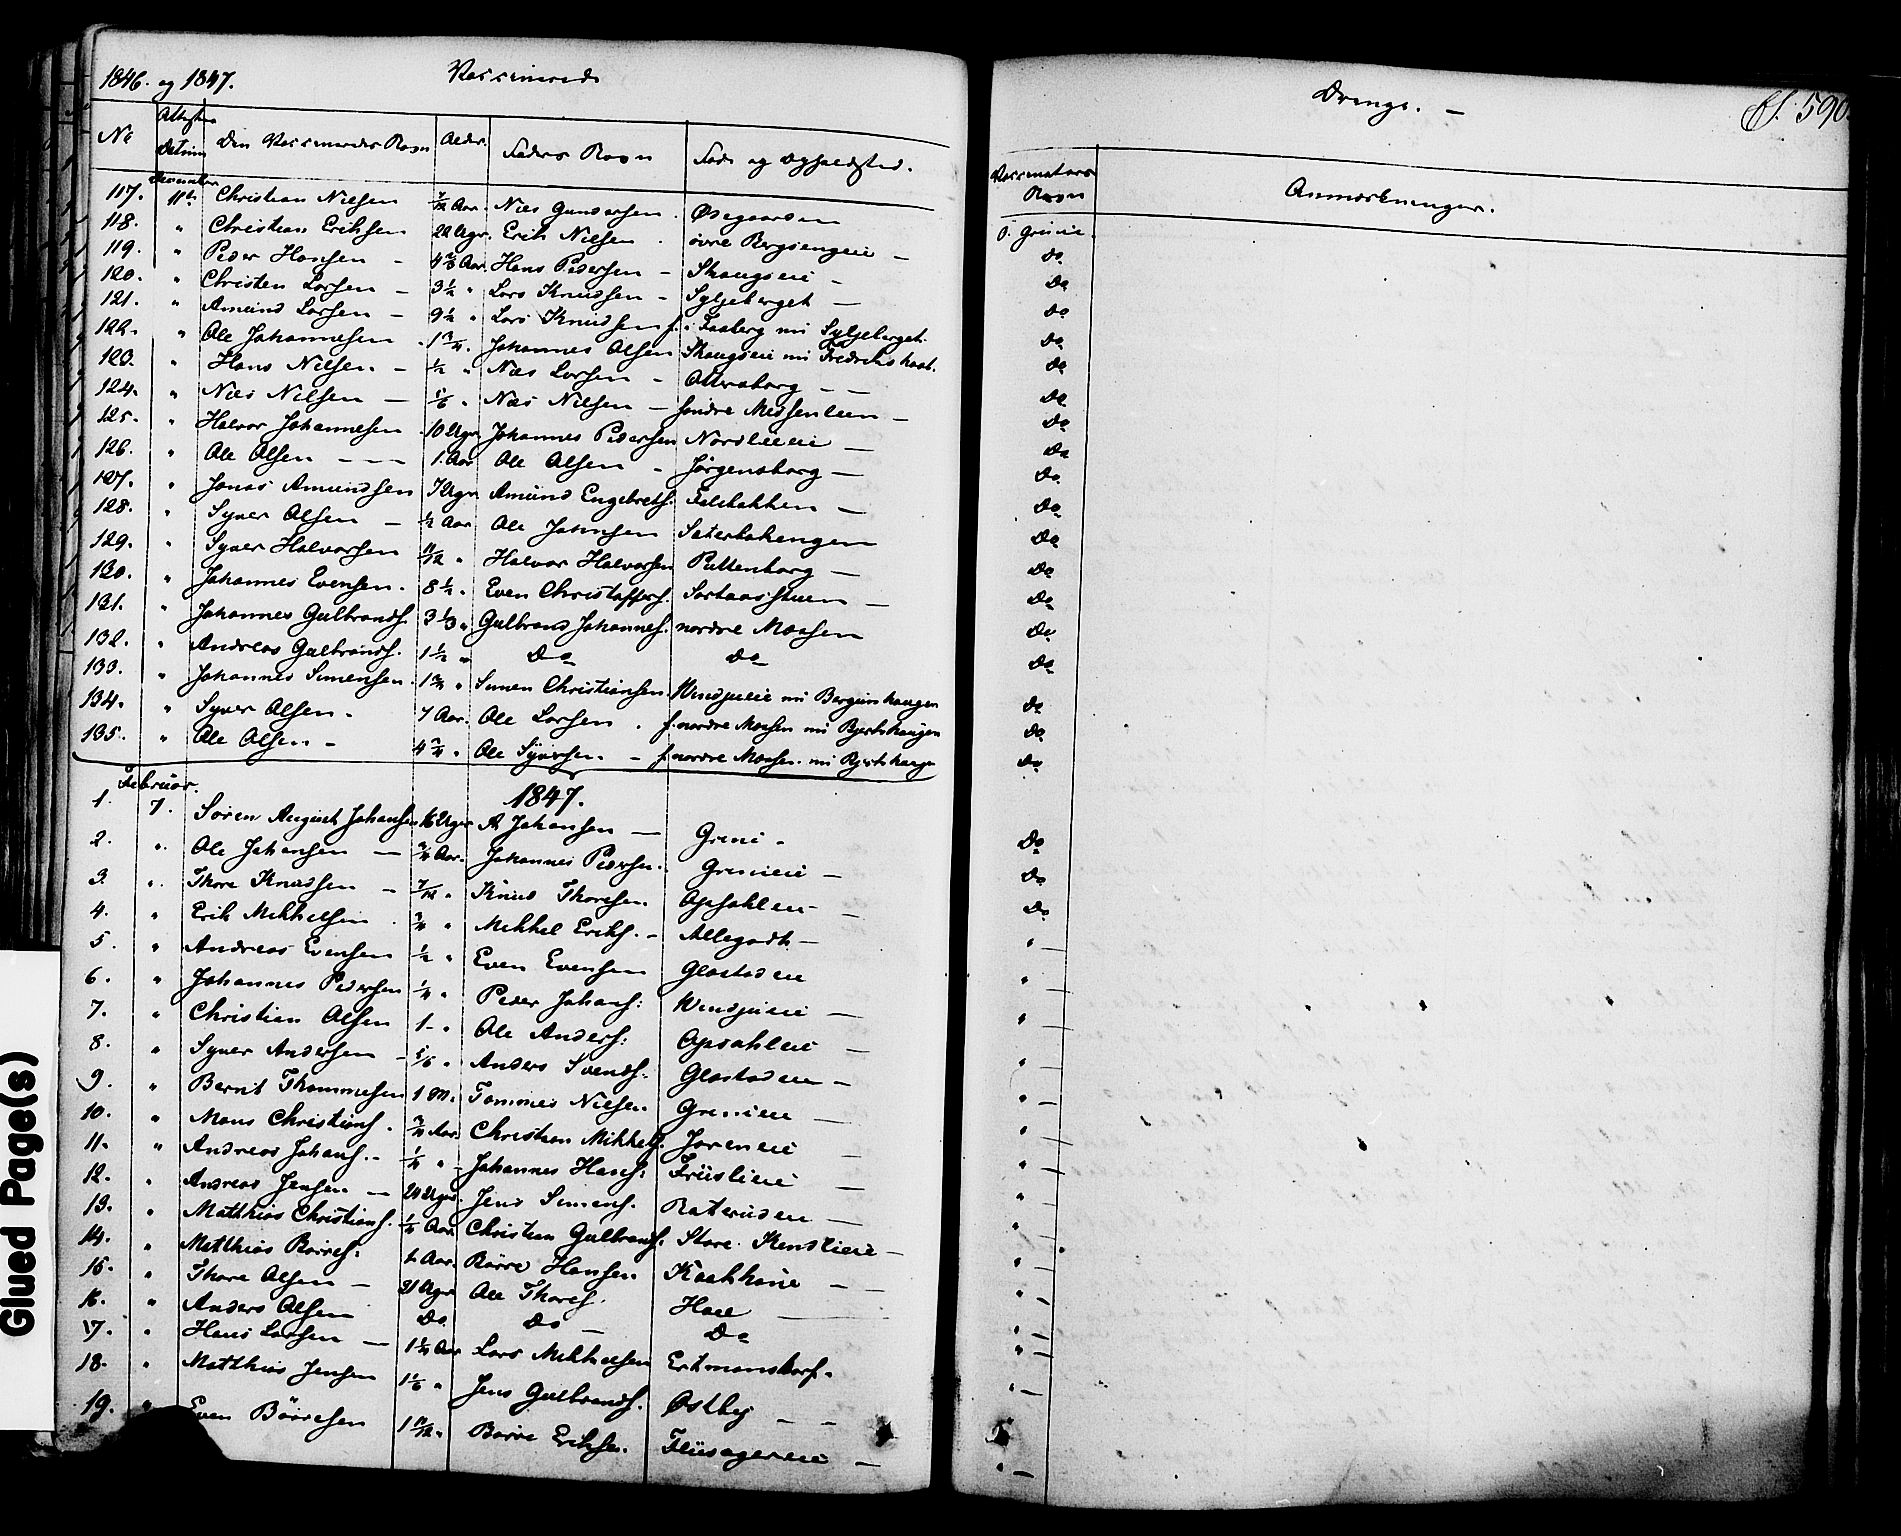 1846. og 1847. Vaccinerede Drenge. — S. 590.
No Attestens Datum Den Vaccineredes Navn Alder. Faders Navn Føde og Opholdssted. Vaccinators Navn Anmærkninger.
December
117. 11te Christian Nielsen Aar. Niels Gundersen. Øvre
118. " Christian Eriksen 22 Uger. Erik Nielsen. øvre Bergsengeie — Do
119. " Peder Hansen — Aar. Hans Pedersen — Skaugseie — Do
120. " Christen Larsen — 3 1/2 " Lars Knudsen — Syljeberget — Do
121. " Amund Larsen — 9 1/2 " Lars Knudsen f. i Faaberg nu Syljeberget. Do
122. " Ole Johannesen Johannes Olsen Skaugseie nu Fredrikshaab. Do
123. " Hans Nielsen — 1/2 " Niels Larsen — — — Do
124. " Niels Nielsen — " Niels Nielsen — søndre Messenlien — Do
125. " Halvor Johannesen 10 Uger Johannes Pedersen Nordlieie — Do
126. " Ole Olsen — — — 1. Aar Ole Olsen — Jørgensborg — Do
127. " Jonas Amundsen 7 Uger Amund Engebrets. Felebakken — Do
128. " Syver Olsen — 1/2 Aar Ole Johnsen Do
129. " Syver Halvorsen 11/12 " Halvor Halvorsen Puttenborg — Do
130. " Johannes Evensen. 8 1/2 " Even Christoffers. — Do
131. " Johannes Gulbrands. 3 1/3 " Gulbrand Johannes. nordre Moesen Do
132. " Andreas Gulbrands. 1 1/2 " Do Do Do
133. " Johannes Simensen. " Simen Christiansen. Windjueie nu Do
134. " Syver Olsen. 7 Aar. Ole Larsen. f. nordre Moesen nu Do
135. " Ole Olsen — Ole Syversen. — f. nordre Moesen nu Do
Februar. 1847.
1. 7. Søren August Johansen 16 Uger A Johansen — Grini — Do
2. " Ole Johansen — Aar. Johannes Pedersen. Grinieie — Do
3. " Thore Knudsen — 7/12 " Knud Thoresen. Opsahleie — Do
4. " Erik Mikkelsen " Mikkel Eriks. — Allegodt — " —
5. " Andreas Evensen 1/2 " Even Evensen Glastadeie " —
6. " Johannes Pedersen 1/4 " Peder Johans: Windjueie — " —
7. " Christian Olsen 1 — " Ole Anders: Opsahleie — " —
8. " Syver Andersen — " Anders Svends. Glastadeie — " —
9. " Bernt Thommesen 1 M. Tommes Nielsen Grinieie — " —
10. " Mons Christians. Aar. Christian Mikkels. Joreneie — " —
11. " Andreas Johans. — 1/4 " Johannes Hans: Friislieie — " —
12. " Andreas Jensen — 24 Uger. Jens Simens. Raterudeie — " —
13. " Matthias Christians. Aar. Christian Gulbrands. Store. Kindlieie — " —
14. " Matthias Børres. Aar. Børre Hansen Kaathaue — " —
15. " Thore Olsen — 21 Uger Ole Thores. Hoel — " —
16. " Anders Olsen Do. Do — Do " —
17. " Hans Larsen — Aar Lars Mikkelsen Ertmanstorf. " —
18. " Matthias Jensen " Jens Gulbrands. Østbej — — " —
19. " Even Børresen 1 11/12 " Børre Eriksen. Fliisageneie — " —
Glued Page(s)